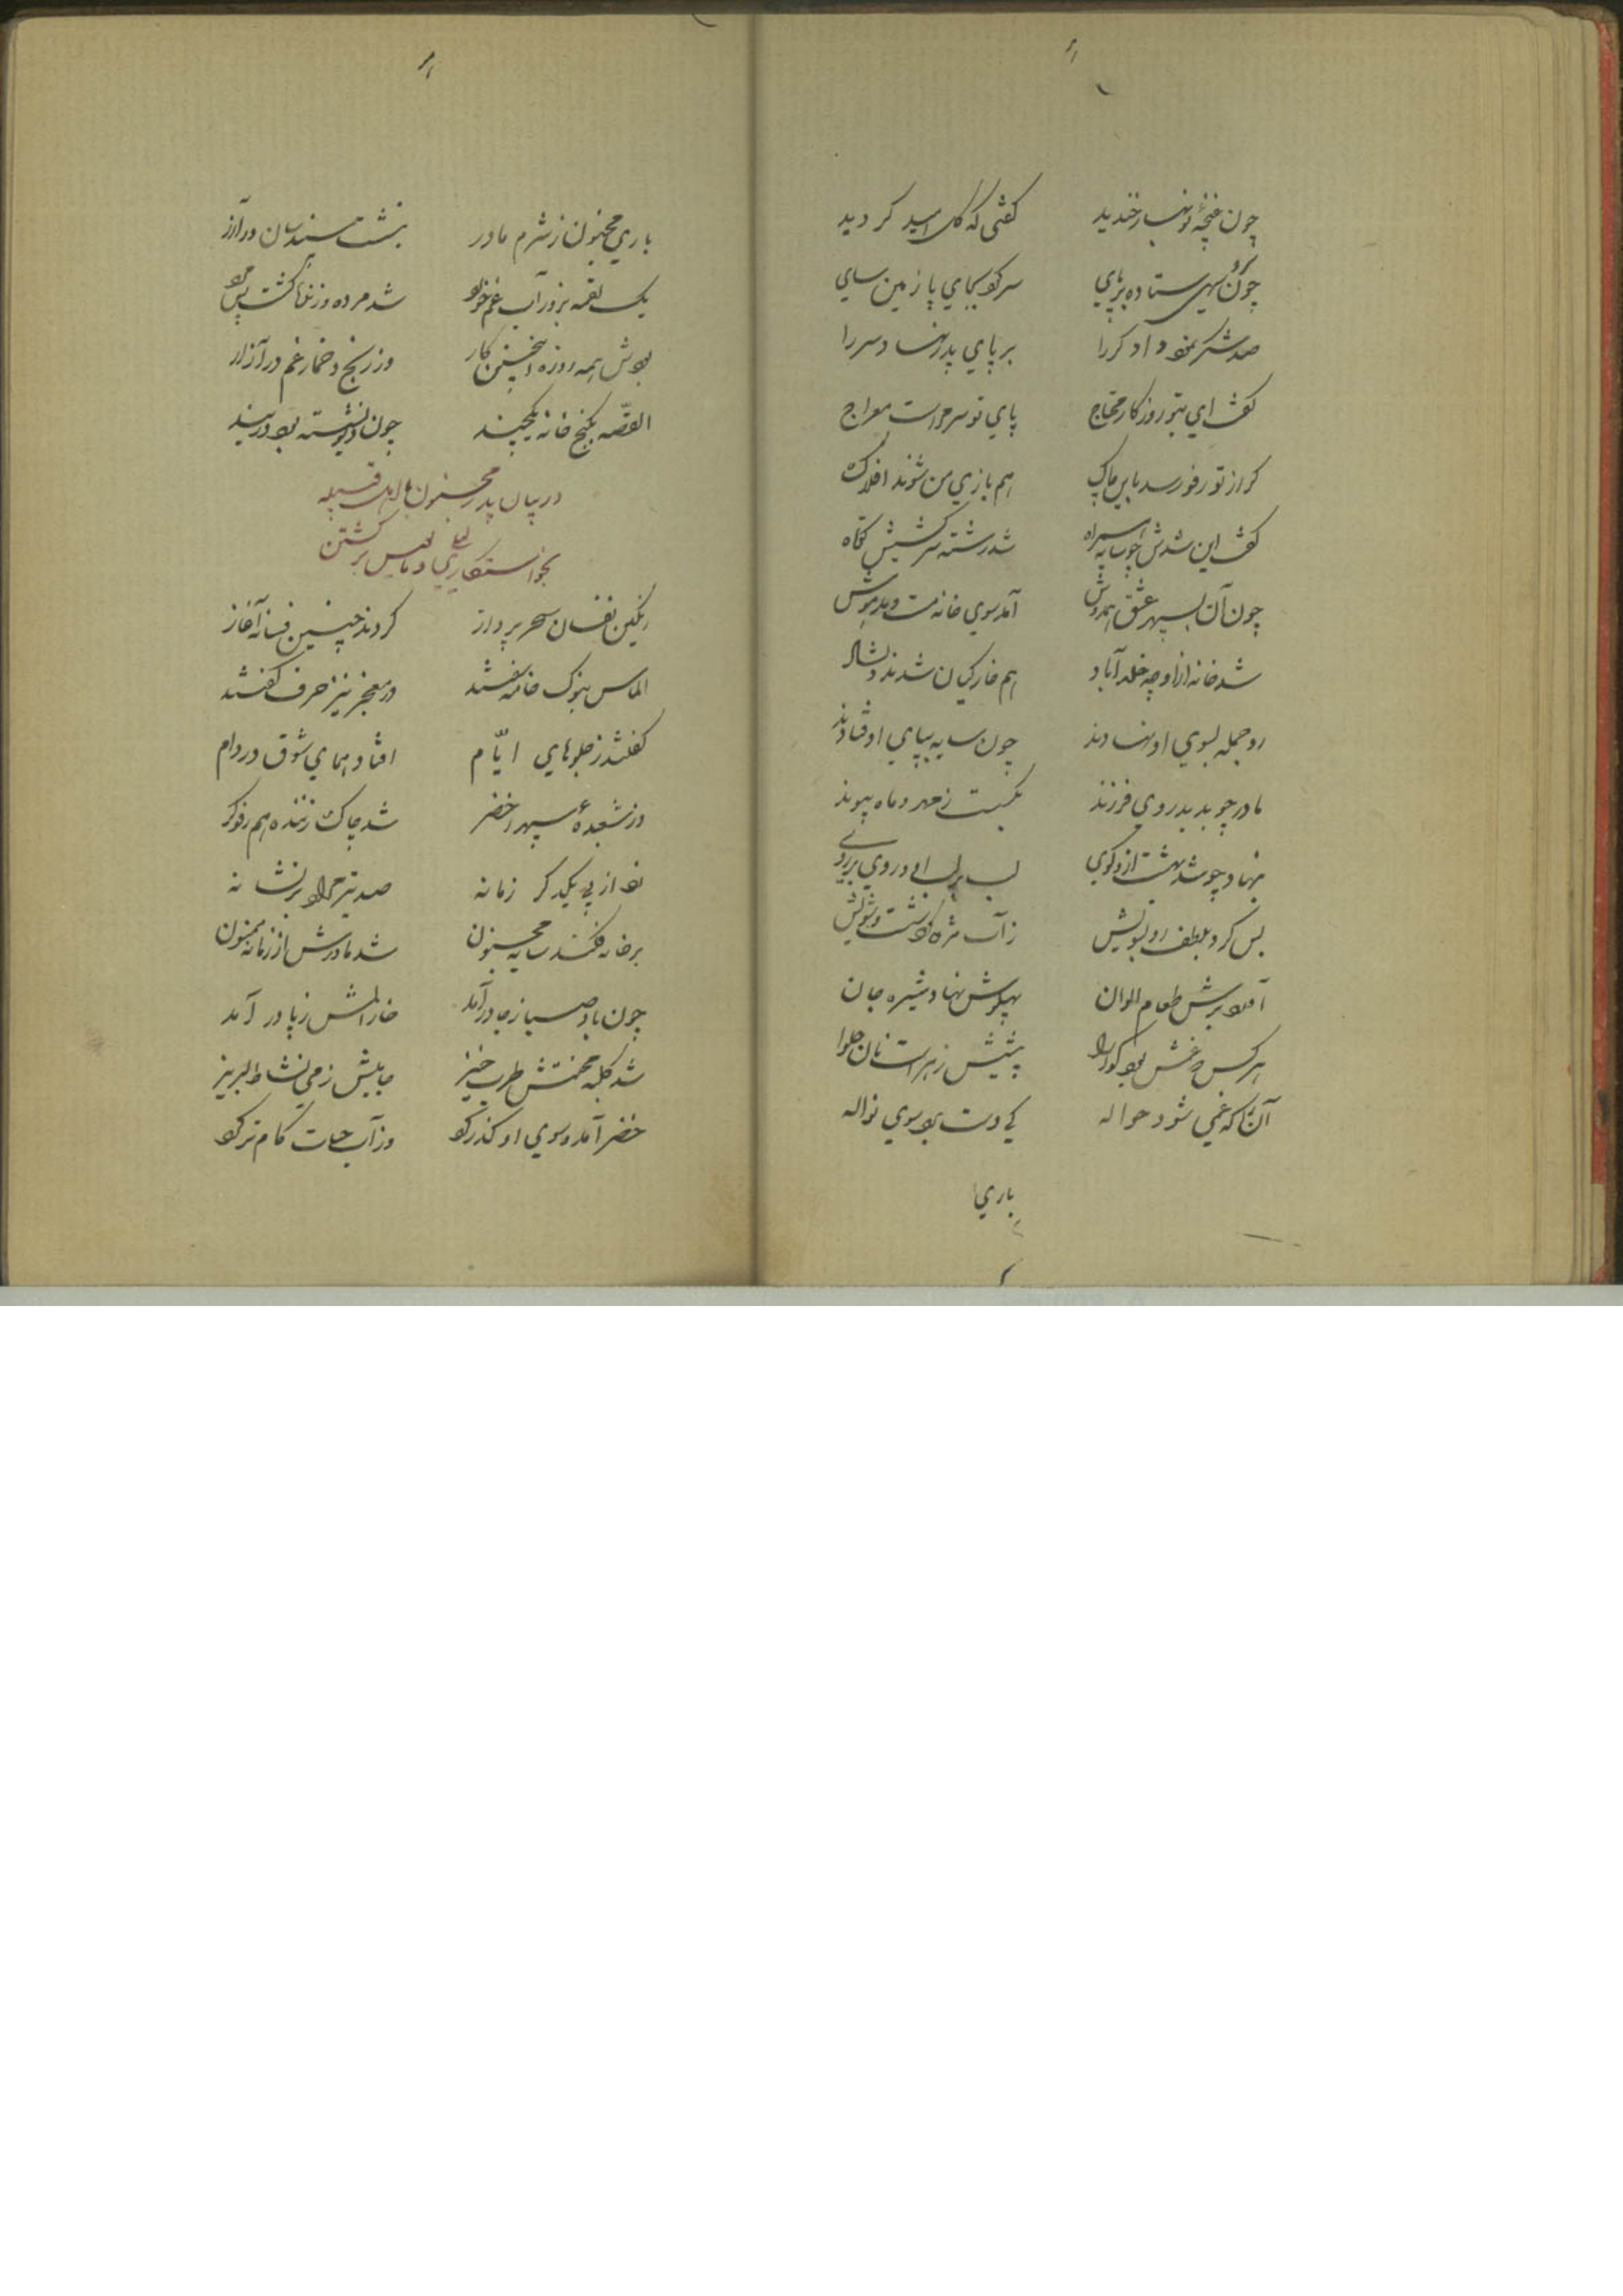 چون غنچهٔ نوبهار خندید گفتی که گل امید گردید
چون سرو سهی ستاده بر پای سر کرد بجای پا زمین سای
صد شکر نمود دادگر را بر پای پدر نهاد سر را
گفت ای بتو روزگار محتاج پای تو سر مراست معراج
گر از تو رفو رسد باین چاک هم بازی من شوند افلاک
گفت این شدش چو سایه همراه شد رشته سرکشیش کوتاه
چون آن بسپهر عشق همدوش آمد سوی خانه مست و مدهوش
شد خانه از او چه خلد آباد هم خانگیان شدند دلشاد
رو جمله بسوی او نهادند چون سایه بپای او فتادند
مادر چو بدید روی فرزند بگسست ز مهر و ماه پیوند
لب بر لب او و روی بر روی
بس کرد بلطف رو بسویش ز آب مژه کرد شست و شویش
آورد برش طعام الوان پهلوش نهاد شیره جان
هر کس که غمش بود گوارا پیشش زهر است نان حلوا
آنرا که غمی شود حواله کی دست برد سوی نواله
باری
باری مجنون ز شرم مادر بنشست سپندسان در آذر
یک لقمه بزور آب غم خورد شد مرده و زندگانی
بودش همه روزه اینچنین کار وز رنج و خمار غم در آزار
القصه بکنج خانه یکچند چون
در بیان پدر مجنون با اهل قبیله
بخواستگاری لیلی و مأیوس برگشتن
رنگین نفسان سحر پرداز کردند چنین فسانه آغاز
الماس بنوک خامه سفتند در معجز نیز حرف گفتند
گفتند ز جلوهای ایام افتاد همای شوق در دام
وز شعبدهٔ سپهر اخضر شد چاک زننده هم رفوگر
زد از پی یکدگر زمانه صد تیر مراد بر نشانه
بر خانه فکند سایه مجنون شد مادرش از زمانه ممنون
چون باد صبا ز جا درآمد خار المش ز پا در آمد
شد کلبه محنتش طرب خیز جامش ز می نشاط لبریز
خضر آمد و سوی او گذر کرد وز آب حیات کام تر کرد